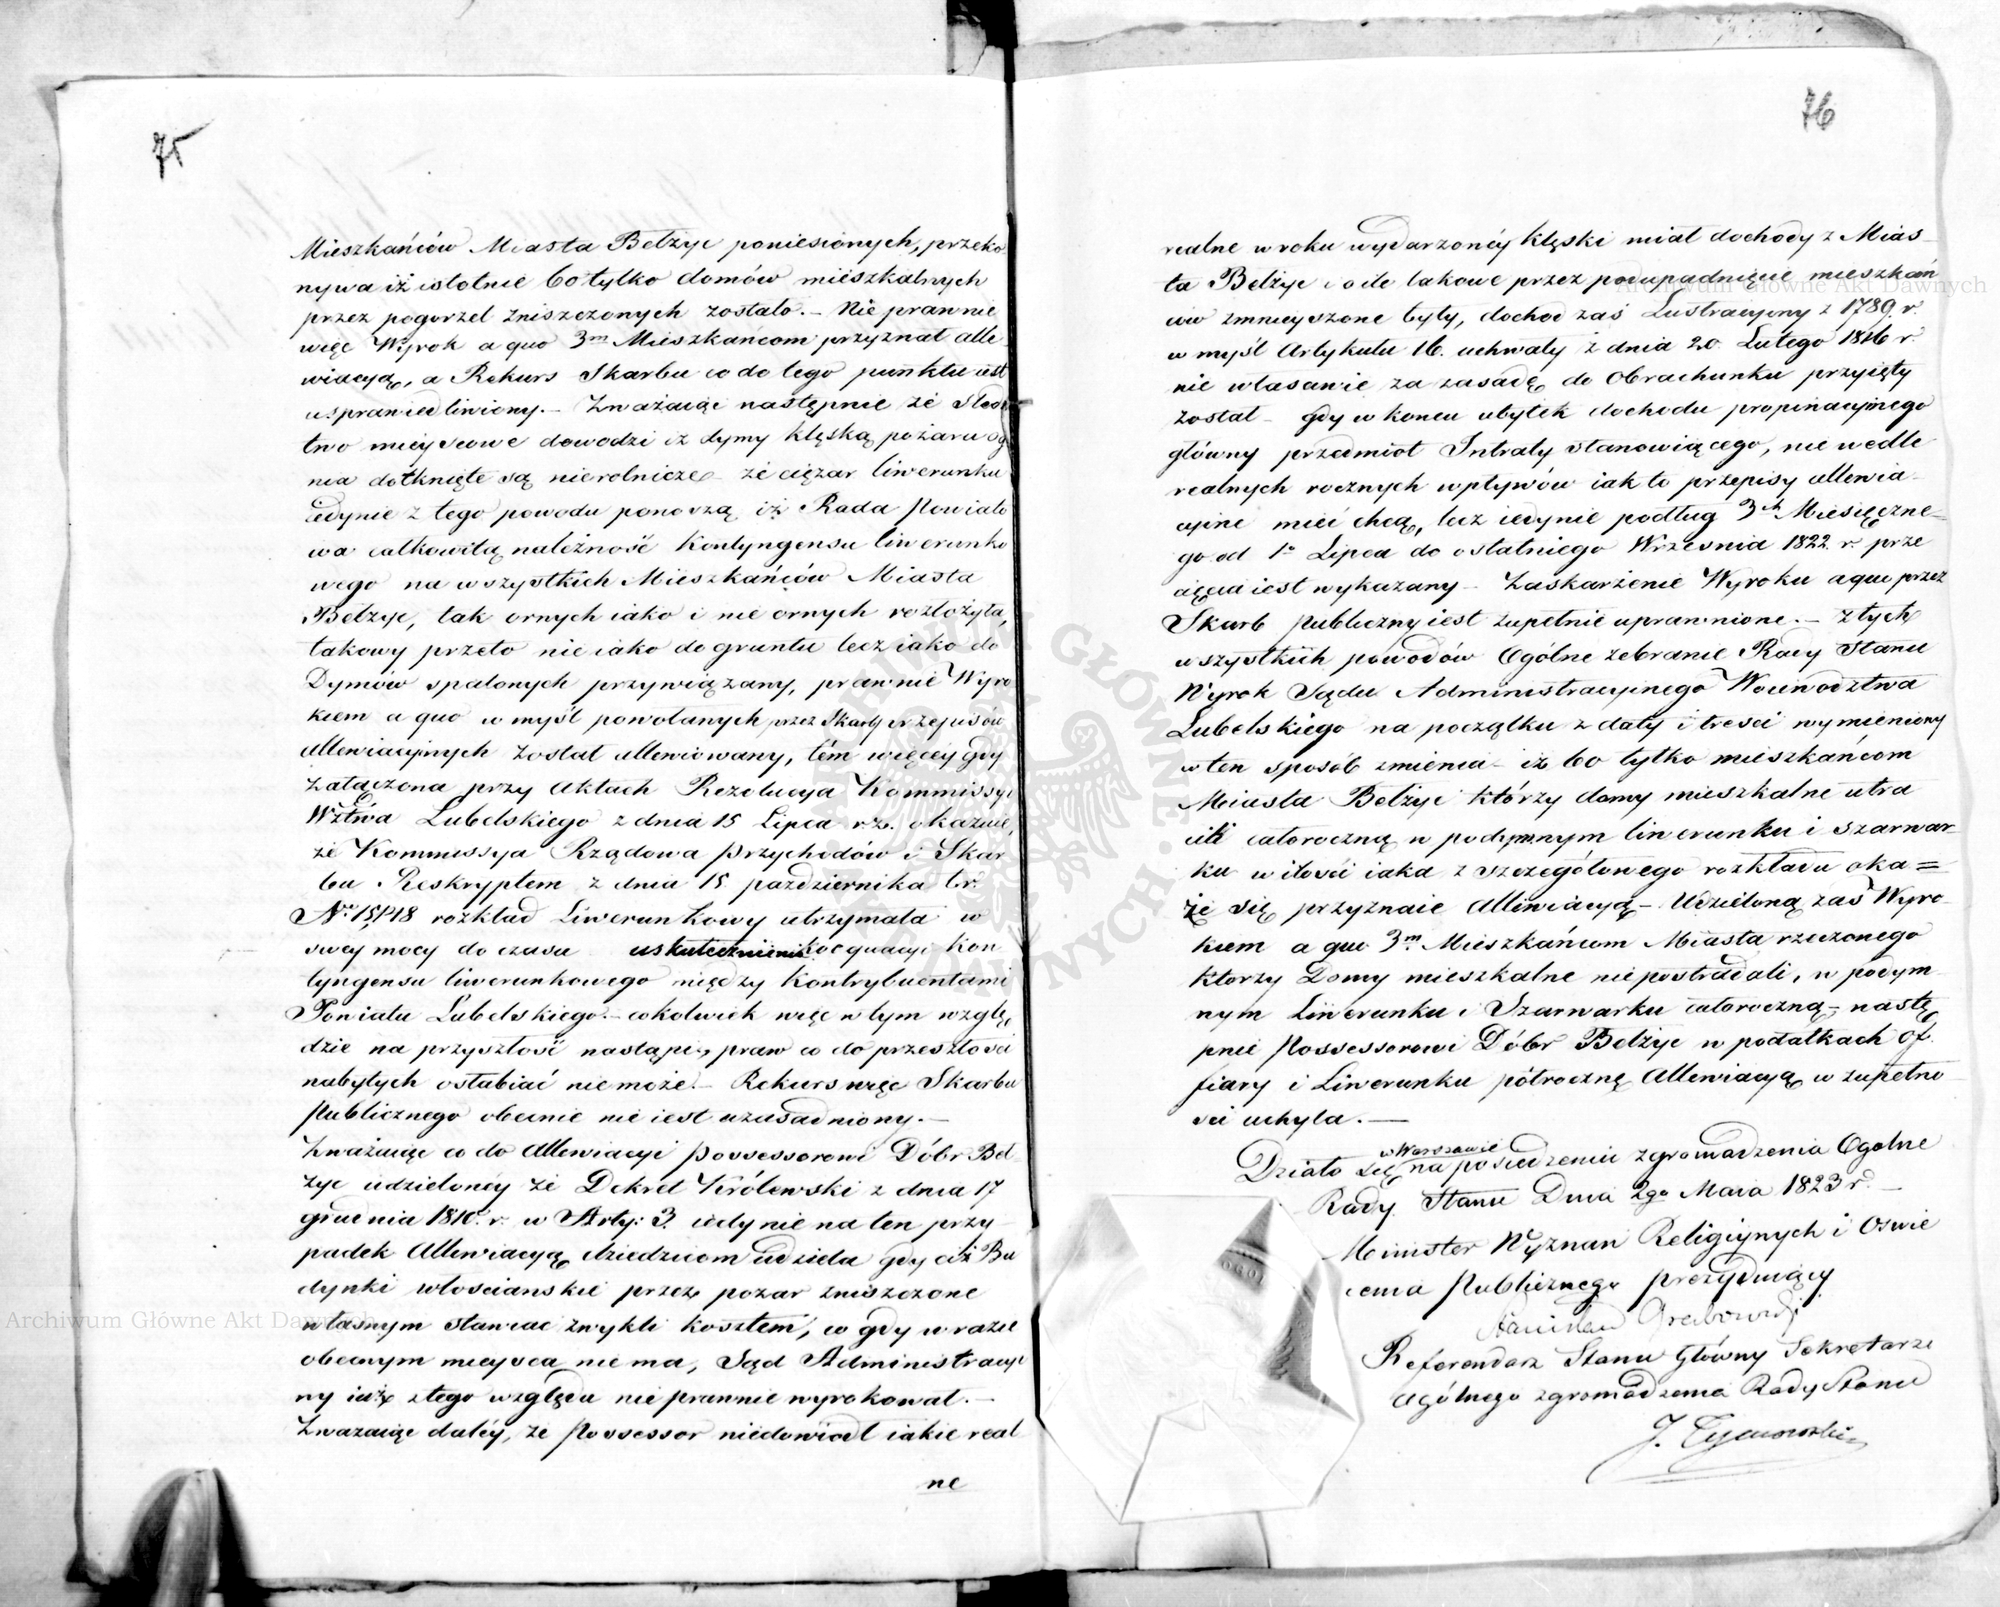 75
Mieszkańców Miasta Bełżyc poniesionych, przeko
nywa iż istotnie 60 tylko domów mieszkalnych
przez pogorzel zniszczonych zostało. – Nie prawnie
więc Wyrok a quo 3m Mieszkańcom przyznał alle
wiacyą, a Rekurs Skarbu co do tego punktu iest
usprawiedliwiony. – Zważaiąc następnie że Śledz
two mieyscowe dowodzi iż dymy klęską pożaru og
nia dotknięte są nierolnicze – że ciężar liwerunku
iedynie z tego powodu ponoszą iż Rada Powiato
wa całkowitą należność Kontyngensu liwerunko
wego na wszystkich Mieszkańców Miasta
Bełżyc, tak ornych iako i nie ornych rozłożyła,
takowy przeto nie iako do gruntu lecz iako do
Dymów spalonych przywiązany, prawnie Wyro
kiem a quo w myśl powołanych przez Skarb przepisów
allewiacyjnych został allewiowany, tém więcéy gdy
załączona przy Aktach Rezolucya Kommissyi
Wztwa Lubelskiego z dnia 15 Lipca r.z. okazuie,
że Kommissya Rządowa Przychodów i Skar
bu Reskryptem z dnia 15 października t.r.
Nr 15,718 rozkład Liwerunkowy utrzymała w
swey mocy do czasu uskutecznienia Koequacyi Kon
tyngensu liwerunkowego między Kontrybuentami
Powiatu Lubelskiego. – cokolwiek więc w tym wzglę
dzie na przyszłość nastąpi, praw co do przeszłości
nabytych osłabiać nie może. – Rekurs więc Skarbu
Publicznego obecnie nie iest uzasadniony. –
Zważaiąc co do Allewiacyi Possessorowi Dóbr Beł-
życ udzielonéy że Dekret Królewski z dnia 17
grudnia 1810. r. w Arty: 3. iedynie na ten przy-
padek Allewiacyą dziedzicom udziela gdy ciż Bu
dynki włościańskie przez pożar zniszczone
własnym stawiać zwykli kosztem, co gdy w razie
obecnym mieysca nie ma, Sąd Administracyi
ny iuż z tego względu nie prawnie wyrokował. –
Zważaiąc daléy, że Possessor niedowiodł iakie real
ne
76
realne w roku wydarzonéy klęski miał dochody z Mias-
ta Bełżyc i o ile takowe przez podupadnięcie mieszkań
ców zmnieyszone były, dochod zaś Lustracyiny z 1789. r.
w myśl Artykułu 16. uchwały z dnia 20. Lutego 1816 r.
nie własciwie za zasadę do Obrachunku przyięty
został – gdy w koncu ubytek dochodu propinacyinego
główny przedmiot Intraty stanowiącego, nie wedle
realnych rocznych wpływów iak to przepisy allewia-
cyine mieć chcą, lecz iedynie podług 3ch Miesięczne-
go od 1o Lipca do ostatniego Września 1822. r. prze
cięcia iest wykazany – Zaskarżenie Wyroku a quo przez
Skarb Publiczny iest zupełnie uprawnione. – Z tych
wszystkich powodów Ogólne zebranie Rady Stanu
Wyrok Sądu Administracyinego Woiewództwa
Lubelskiego na początku z daty i tresci wymieniony
w ten sposób zmienia – iż 60 tylko mieszkańcom
Miasta Bełżyc którzy domy mieszkalne utra
cili całoroczną w podymnym liwerunku i szarwar-
ku w ilości iaka z szczegółowego rozkładu oka=
że się przyznaie Allewiacyą – Udzieloną zaś Wyro-
kiem a quo 3m Mieszkańcom Miasta rzeczonego
ktorzy Domy mieszkalne nie postradali, w podym-
nym Liwerunku i Szarwarku całoroczną – nastę
pnie Possessorowi Dóbr Bełżyc w podatkach of-
fiary i Liwerunku półroczną Allewiacyą w zupełno-
sci uchyla. –
w Warszawie
Działo się na posiedzeniu zgromadzenia Ogolne
Rady Stanu Dnia 2go Maia 1823 r. –
Minister Wyznań Religiynych i Oswie
cenia Publicznego prezyduiący
Stanisław Grabowski
Referendarz Stanu Główny Sekretarz
Ogólnego zgromadzenia Rady Stanu
J. Tymowski
Archiwum Główne Akt Dawnych
Archiwum Główne Akt Dawnych